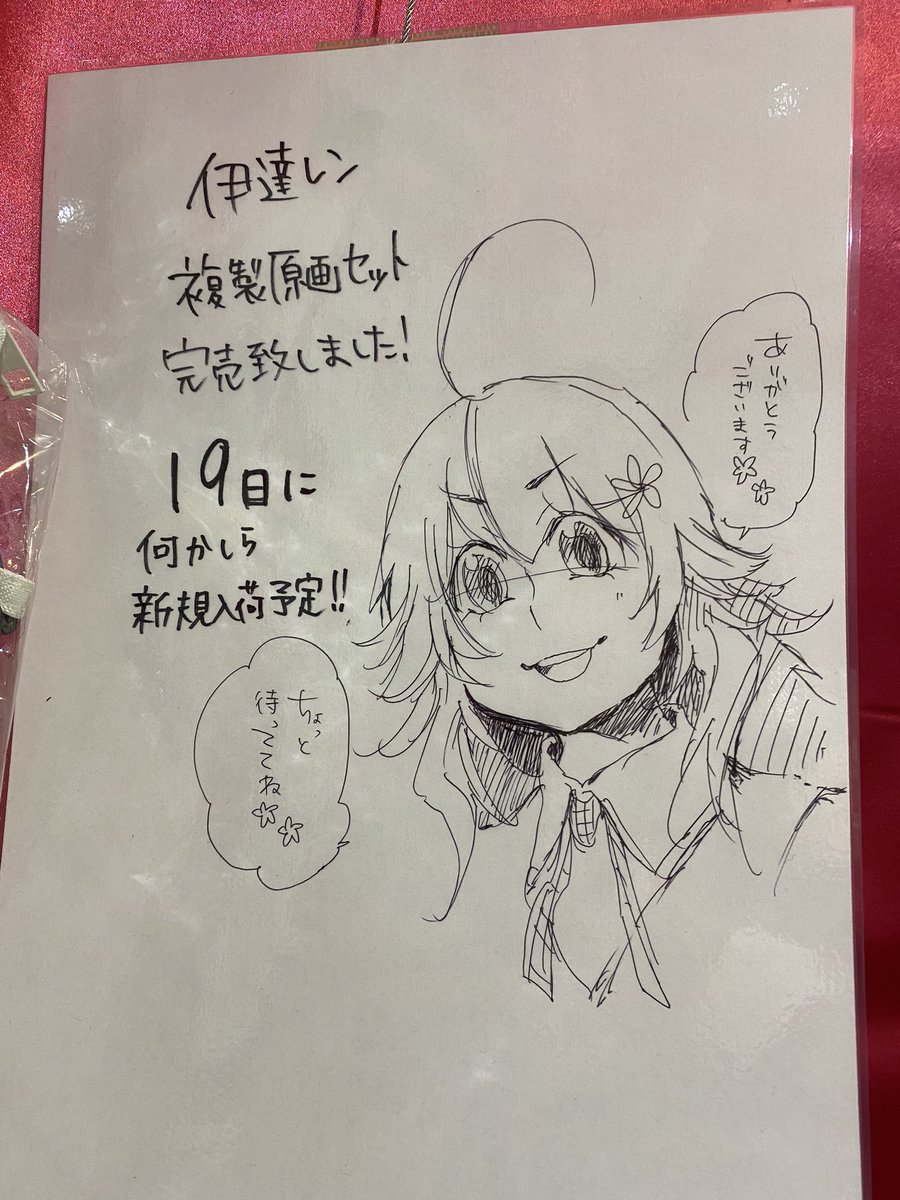 伊達レン
複製原画セット
完売致しました!
19日に
何かしら
新規入荷予定!!
ありがとう
ございます
ちょっと
待っててね